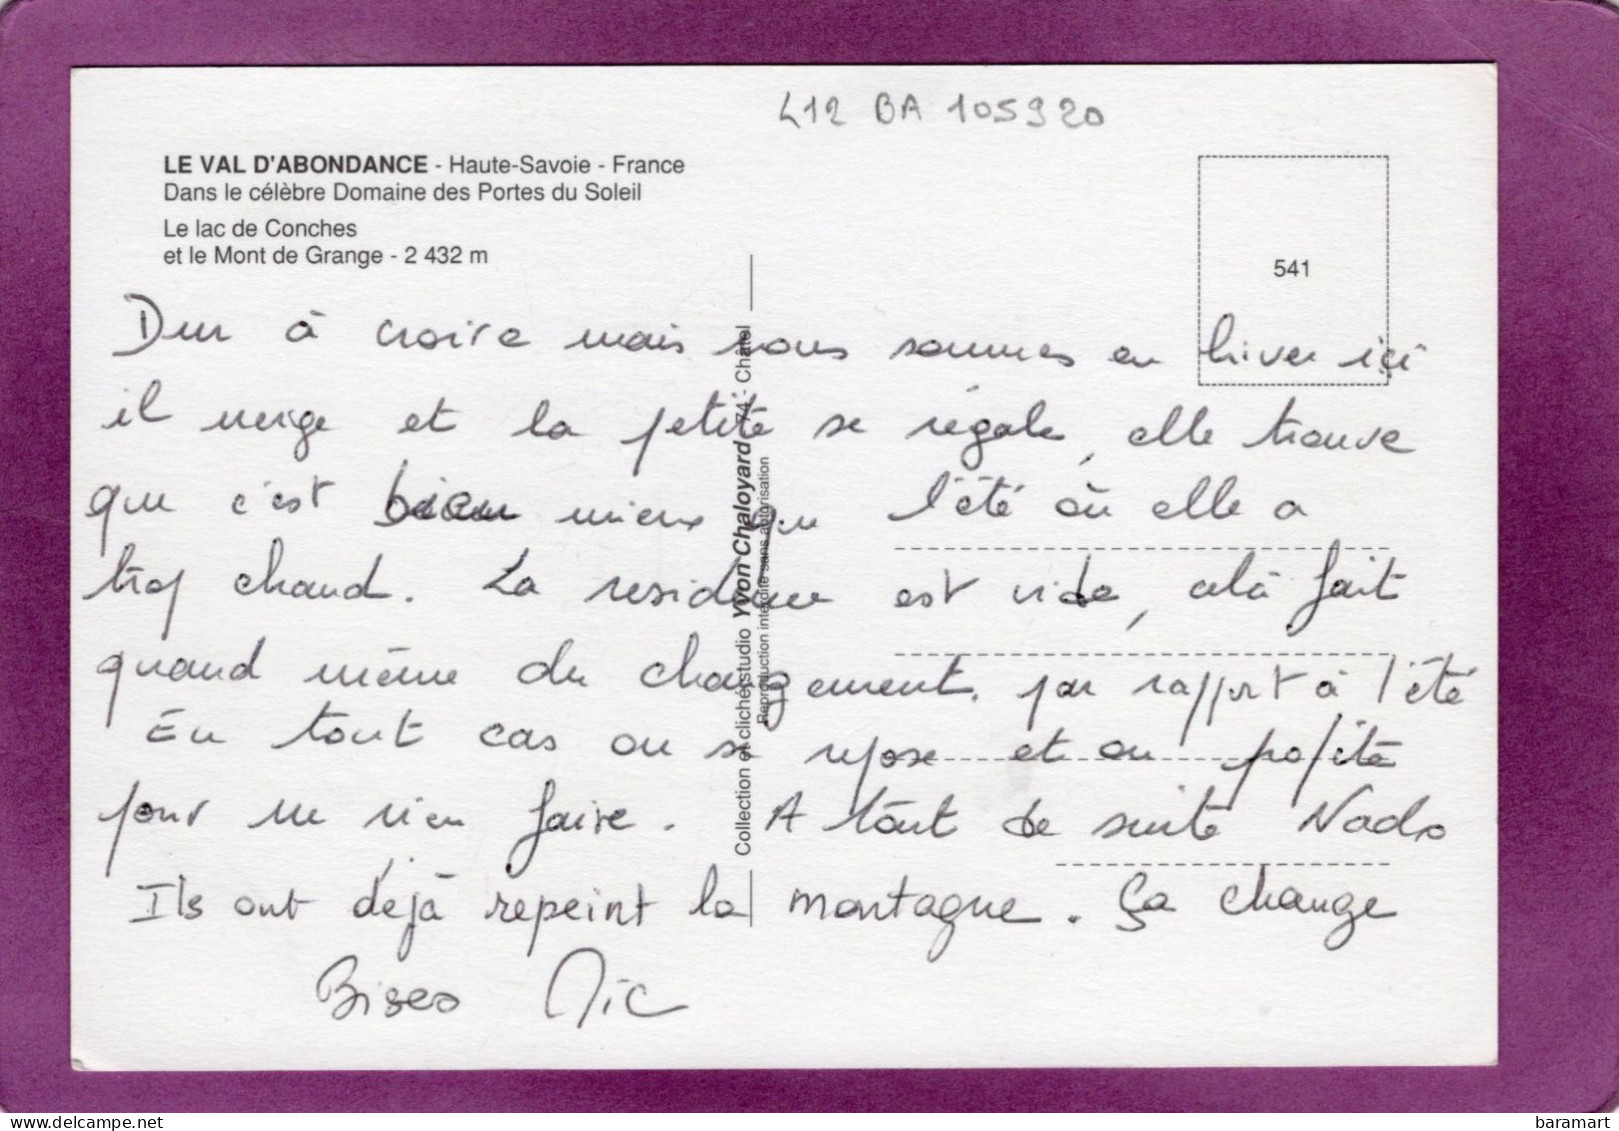 L12 BA 105920
LE VAL D'ABONDANCE - Haute-Savoie - France
Dans le célèbre Domaine des Portes du Soleil
Le lac de Conches
et le Mont de Grange - 2 432 m
541
Dur à croire mais nous sommes en hiver ici
il neige et la petite se régale, elle trouve
que c'est bien mieux que l'été où elle a
trop chaud. La residence est vide, celà fait
quand même du changement. par rapport à l'été
En tout cas on se repose et on profite
pour ne rien faire. A tout de suite Nado
Ils ont déjà repeint la montagne. Ça change
Bises Nic
Collection et cliché studio Yvon Chaloyard 74 - Châtel
Reproduction interdite sans autorisation
baramart